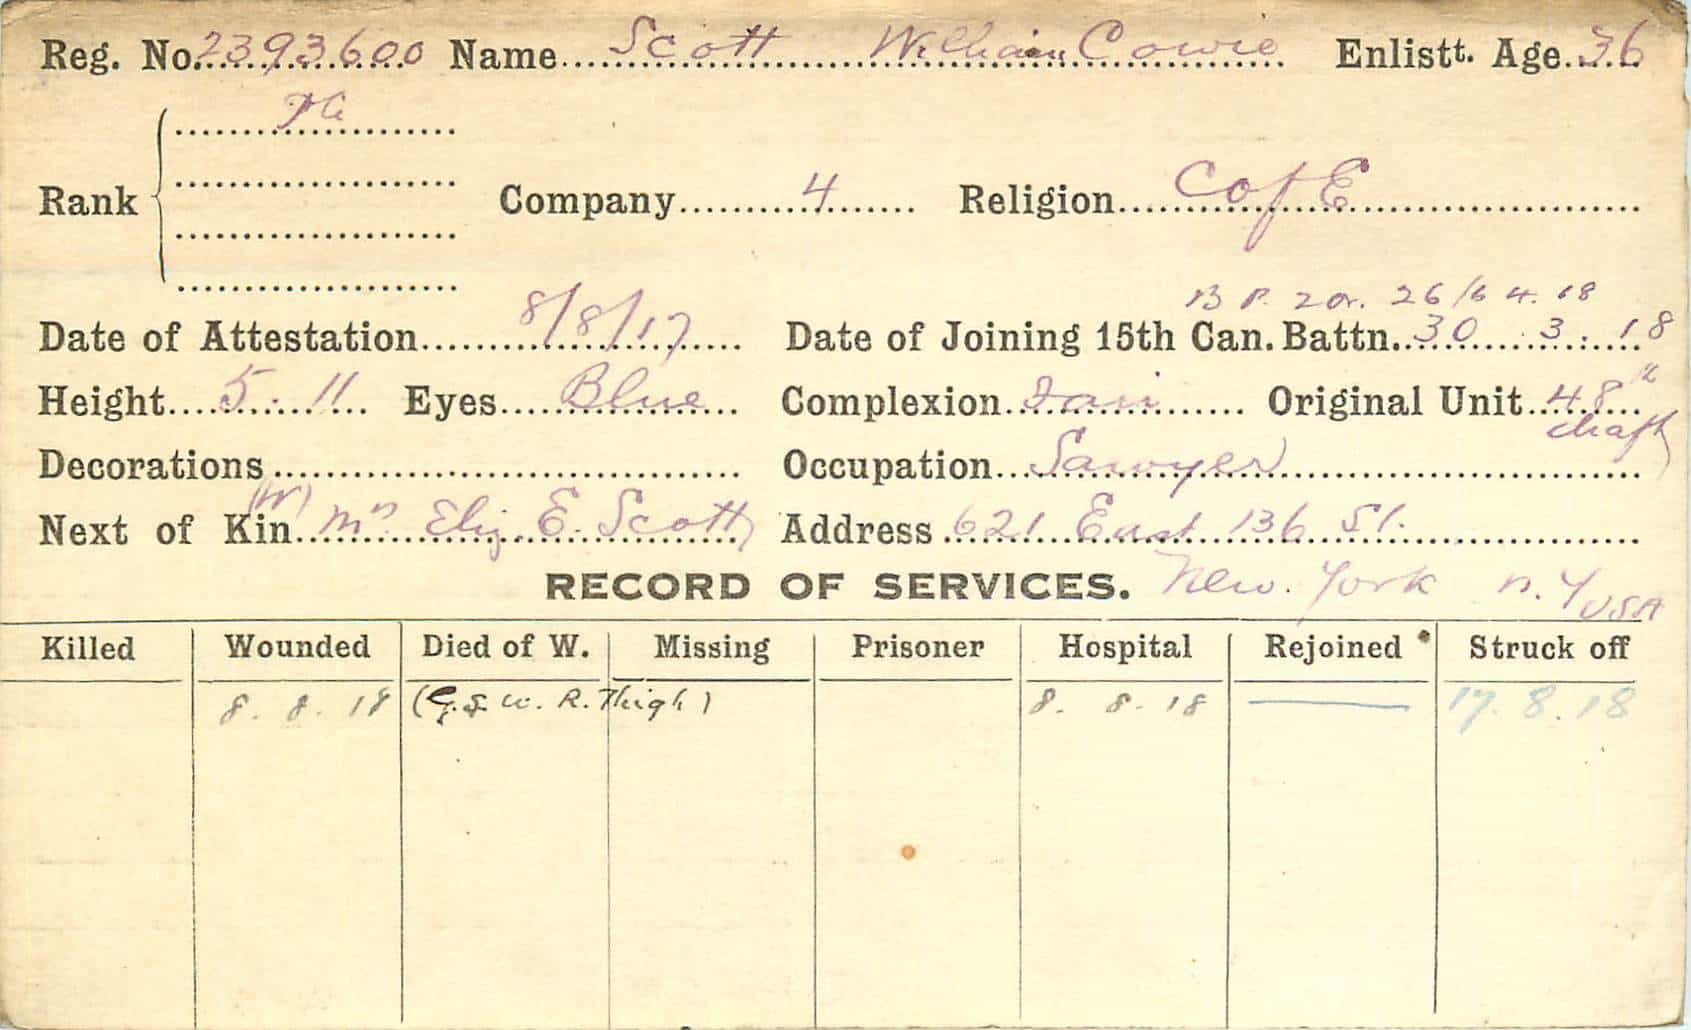 Reg. No. 2393600 Name Scott William Cowie Enlistt. Age. 36
Pte
Rank Company 4 Religion C of E
26/ 4. 18
Date of Attestation 8/8/17 Date of Joining 15th Can. Battn. 30 . 3. 18
Height 5. 11 Eyes Blue Complexion Fair Original Unit 48th
draft
Decorations Occupation Sawyer
(W)
Next of Kin Mrs Eliz. E. Scott Address 621 East 136 St.
RECORD OF SERVICES. New York N.Y USA
Killed Wounded Died of W. Missing Prisoner Hospital Rejoined Struck off
8. 8. 18 (G.S.W. R. Thigh) 8. 8. 18 17. 8. 18